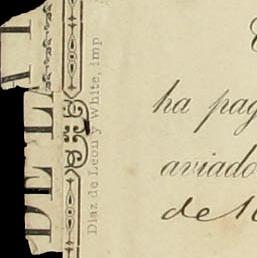 DE LA
Diaz de Leon y White, imp
ha pag
aviado
de